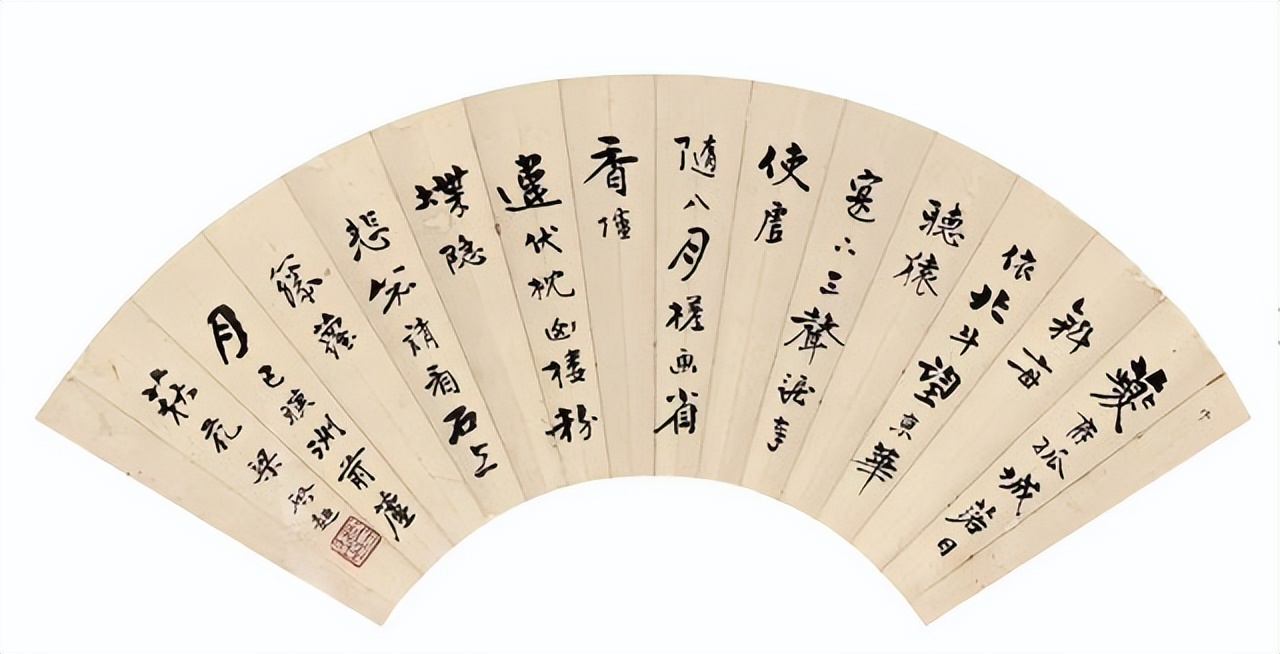 夔府孤城落日
斜每
依北斗望京華
聽猿
寔下三聲淚奉
使虛
隨八月槎画省
香爐
違伏枕山樓粉
堞隐
悲笳請看石上
藤蘿
月已映洲前蘆
荻花 梁啓超